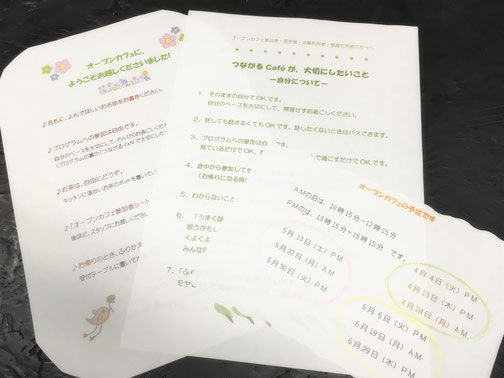 オープンカフェに、
ようこそお越しくださいました!
♪名札に、よんでほしいお名前をお書きください。
♪プログラムへの参加は自由です。
自分のペースを大切にして、のんびりお過ごしくださ
(プログラムの裏の「つながるCafeで大切にした
♪お茶は、自由にどうぞ。
キッチンに温かいお茶のポットを置いてい
♪「オープンカフェ参加者シート
後ほど、スタッフにお渡しくださ
♪お帰りのとき、
受付テーブルに置いて
つながる Café が、大切にしたいこと
ー自分についてー
1. そのままの自分でOKです。
自分のペースを大切にして、無理せずお過ごしください。
2. 話しても話さなくてもOKです。話したくないときはパスできます。
3. プログラムへの参加は
見ているだけでOK、
で過ごすだけでOKです。
4. 途中から参加しても
(お帰りになる時
5. わからないこと
6. 「うまく話
思うかもし
くよくよ
みんな
7. 「ふ
そや
オープンカフェの予定です
AMの日は、10時15分~12時15分
PMの日は、13時15分~15時15分 です。
5月13日(土)PM
5月22日(月)AM
5月30日(火)PM
4月4日(火)PM
4月13日(木)PM
4月24日(月)AM
6月6日(火)PM
6月19日(月)AM
6月29日(木)PM